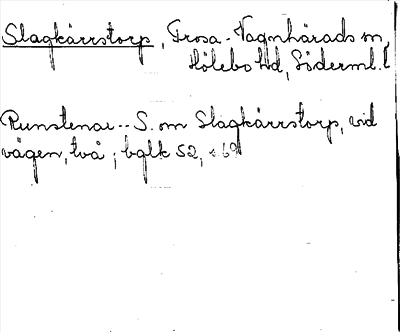 Slagkärrstorp, Trosa-Vagnhärads sn,
Hölebo hd, Söderml. l
Runstenar -- S. om Slagkärrstorp, vid
vägen, två; bglk 52, 69